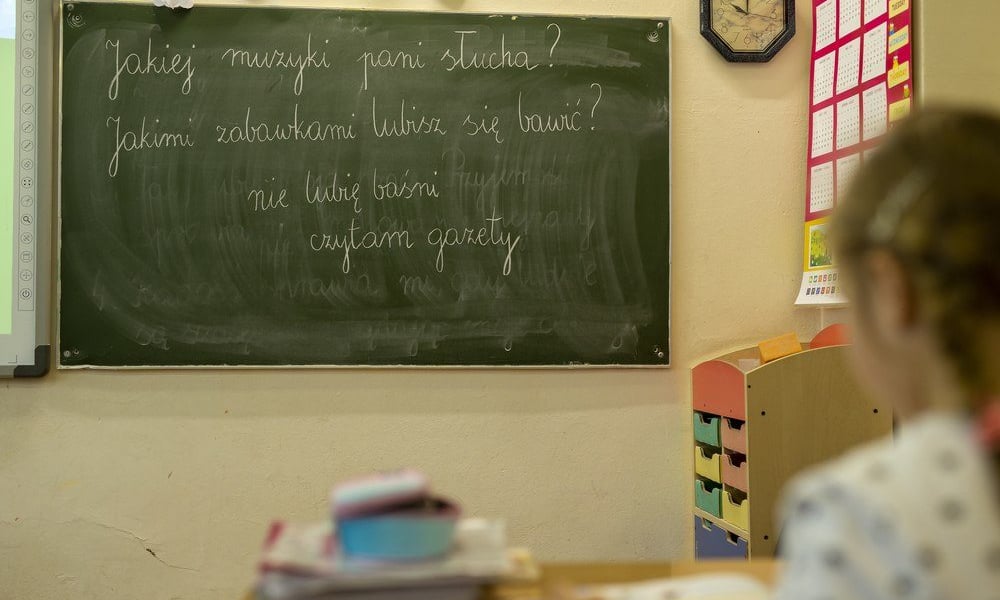 Jakiej muzyki pani słucha?
Jakimi zabawkami lubisz się bawić?
nie lubię baśni
czytam gazety